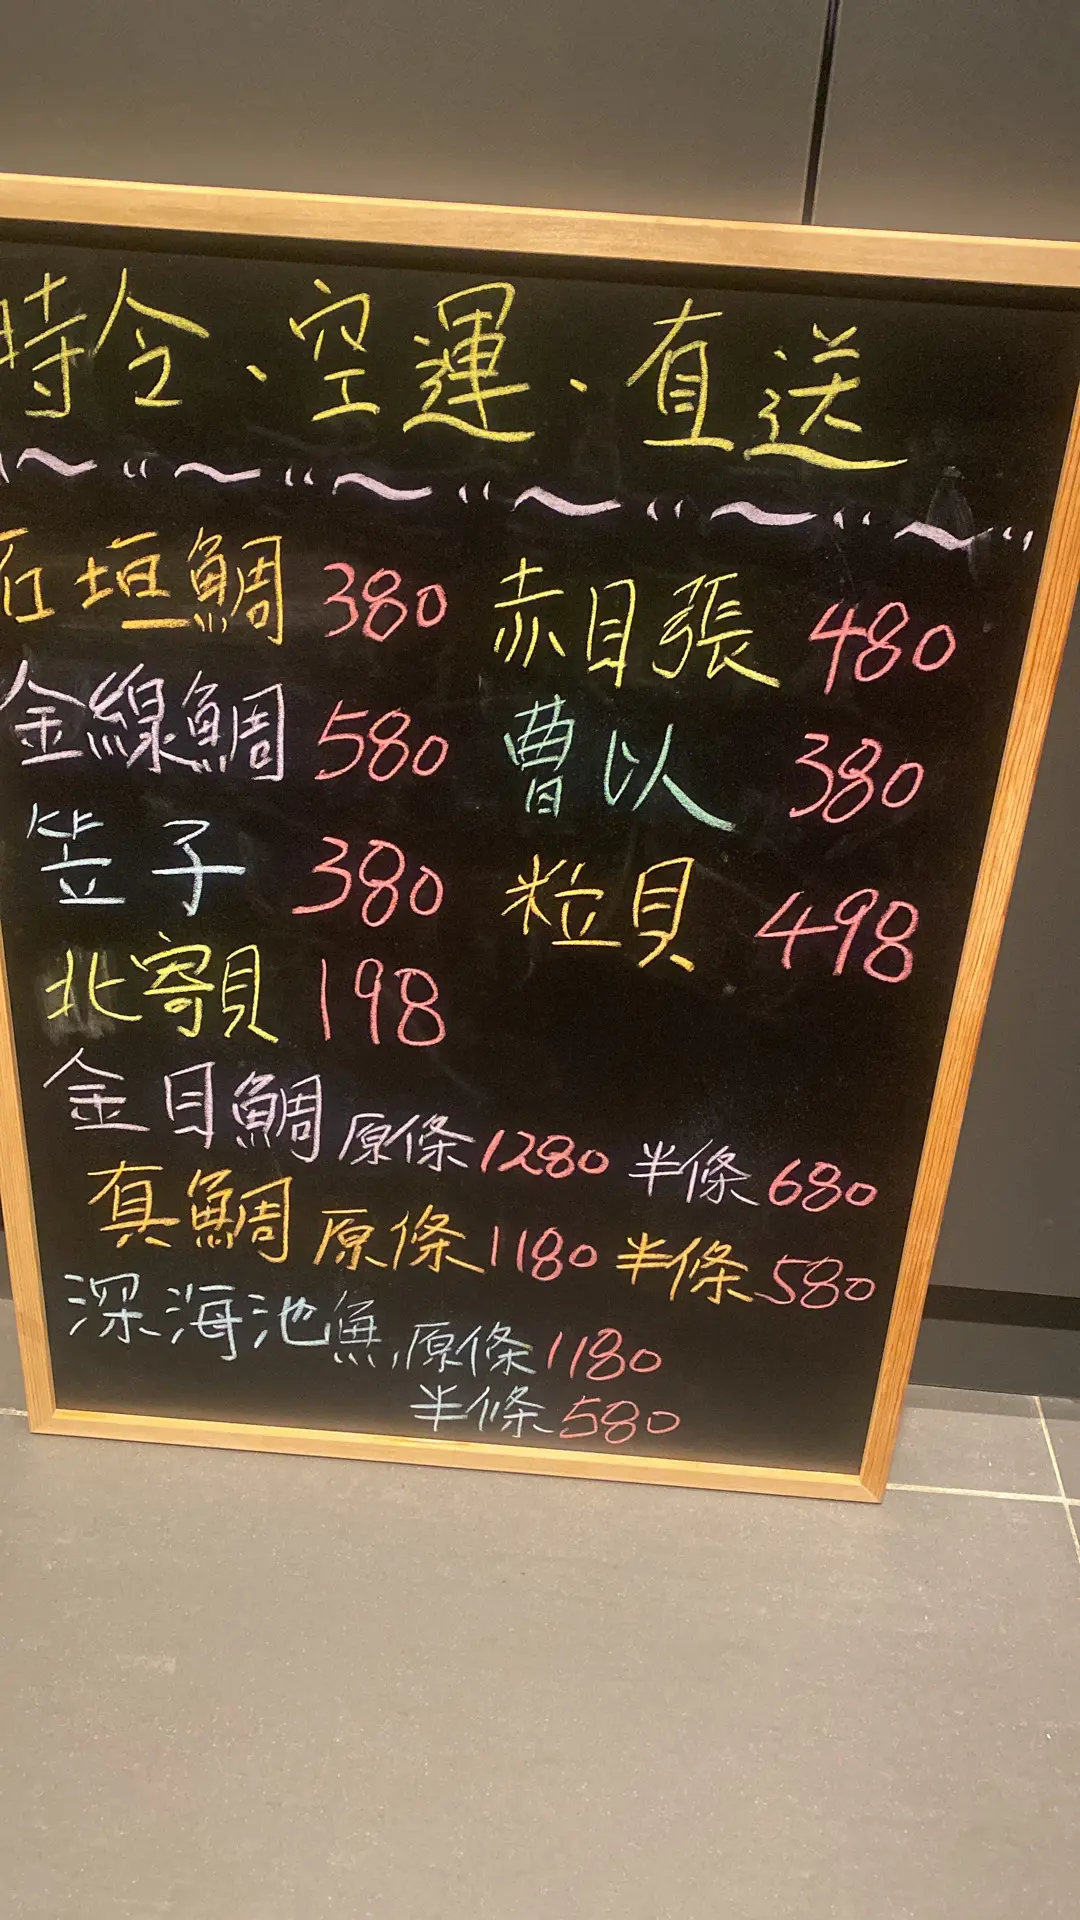 時令、空運、直送
石垣鯛 380 赤目張 480
金線鯛 580 曹以 380
笠子 380 粒貝 498
北寄貝 198
金目鯛 原條1280 半條680
真鯛 原條1180 半條580
深海池魚,原條1180
半條580